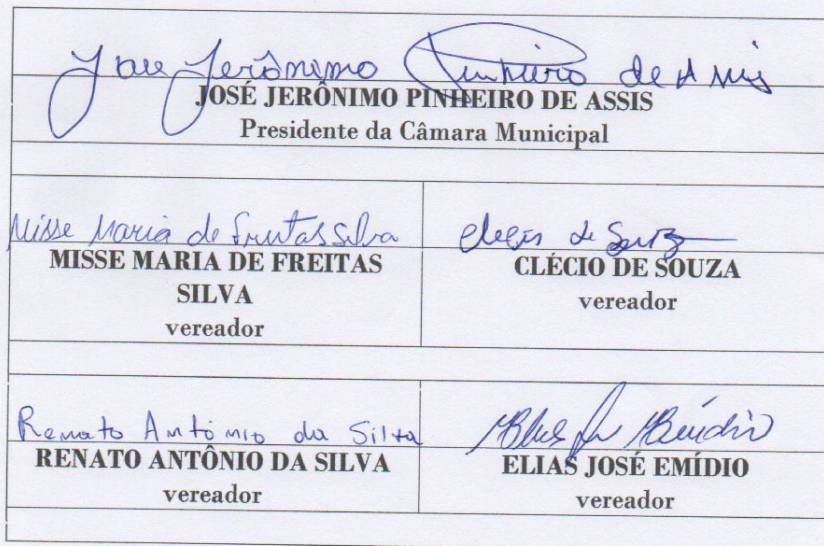 José Jerônimo Pinheiro de Assis
JOSÉ JERÔNIMO PINHEIRO DE ASSIS
Presidente da Câmara Municipal
Misse Maria de Freitas Silva
MISSE MARIA DE FREITAS
SILVA
vereador
Clécio de Souza
CLÉCIO DE SOUZA
vereador
Renato Antônio da Silva
RENATO ANTÔNIO DA SILVA
vereador
ELIAS JOSÉ EMÍDIO
vereador